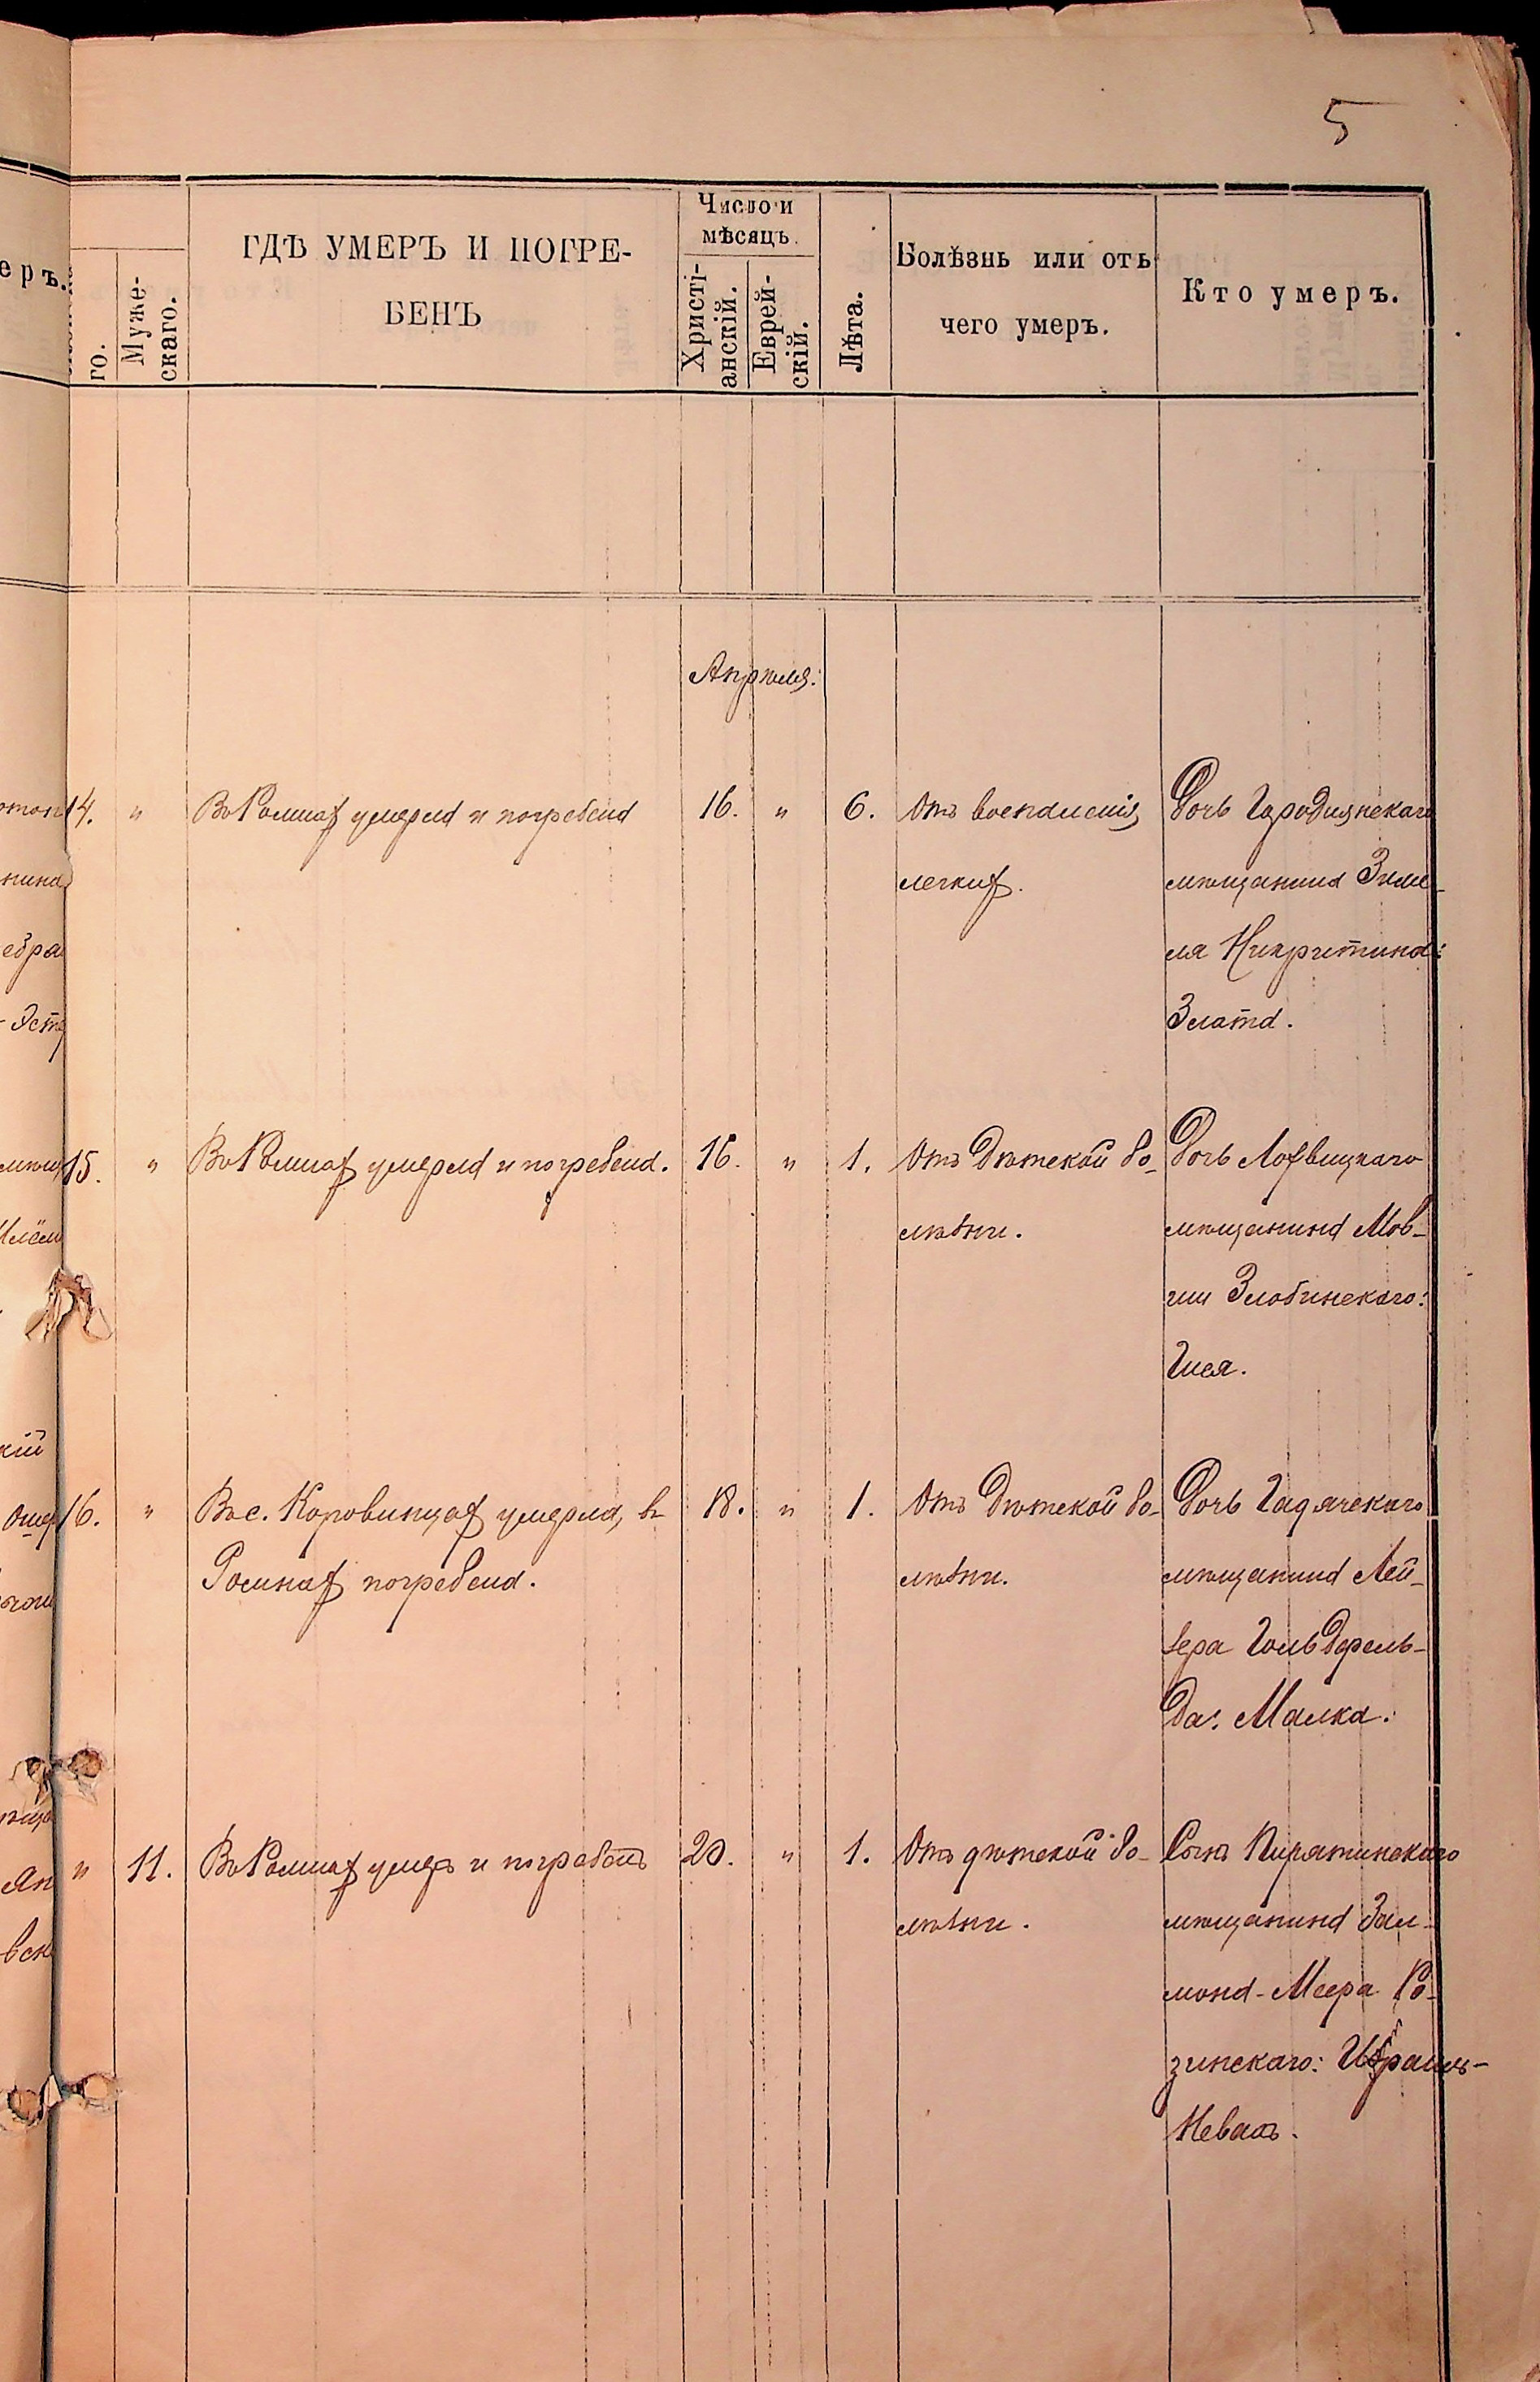 5
еръ.
го.
Муже-
скаго.
ГДѢ УМЕРЪ И ПОГРЕ-
БЕНЪ
Число и
мѣсяцъ.
Христі-
анскій.
Еврей-
скій.
Лѣта.
Болѣзнь или отъ
чего умеръ.
Кто умеръ.
Апрѣля:
14. " Въ Ромнах умерла и погребена 16. " 6. Отъ воспаленія Дочь Городнянскаго
легких. мѣщанина Зиме-
ля Никритина:
Злата.
15. " Въ Ромнах умерла и погребена. 16. " 1. Отъ Дѣтской бо- Дочь Лохвицкаго
лѣзни. мѣщанина Мов-
ши Злобинскаго:
Гися.
16. " Въ с. Коровинцах умерла, въ 18. " 1. Отъ Дѣтской бо- Дочь Гадячскаго
Ромнах погребена. лѣзни. мѣщанина Лей-
зера Гольдфель-
да: Малка.
" 11. Въ Ромнах умеръ и погребенъ 20. " 1. Отъ дѣтской бо- Сынъ Пирятинскаго
лѣзни. мѣщанина Зал-
мона-Меера Ро-
зинскаго: Израиль-
Невахъ.